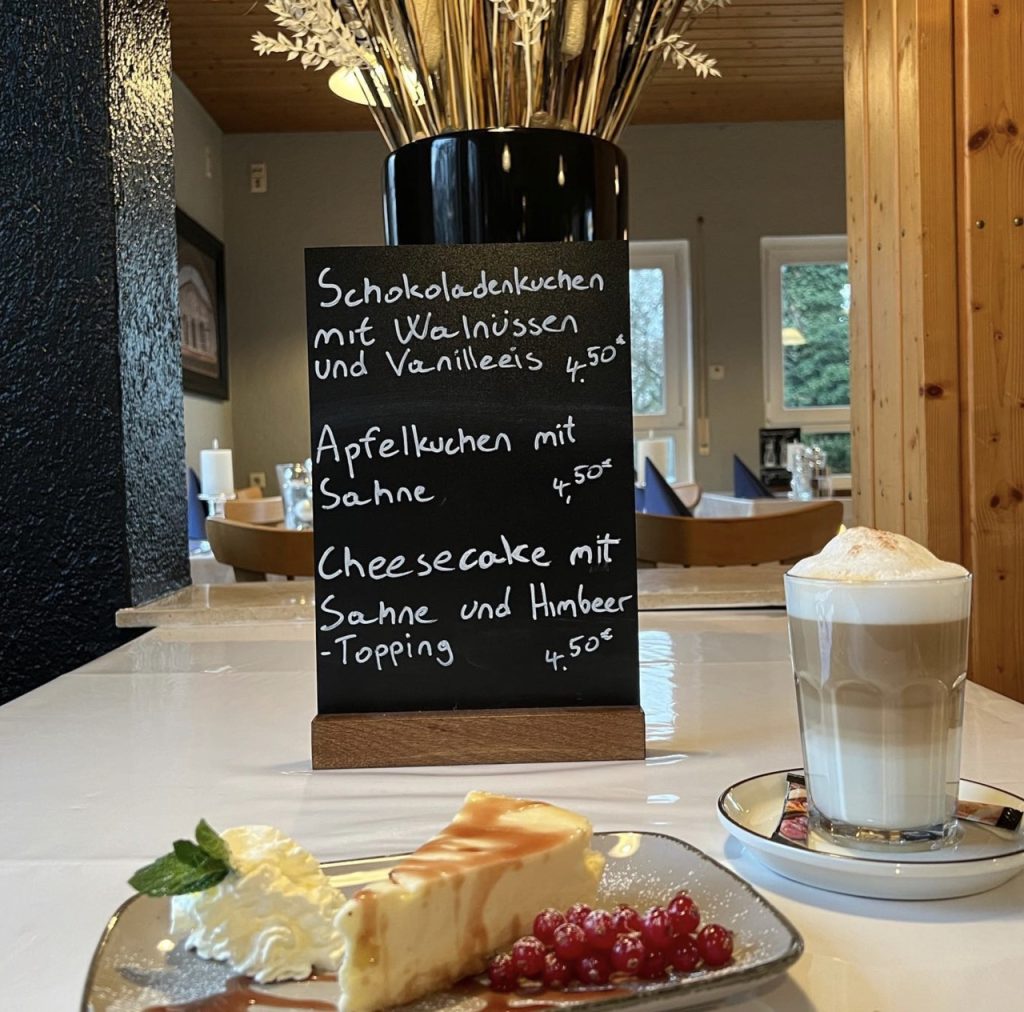 Schokoladenkuchen
mit Walnüssen
und Vanilleeis 4.50€
Apfelkuchen mit
Sahne 4,50€
Cheesecake mit
Sahne und Himbeer
-Topping 4.50€